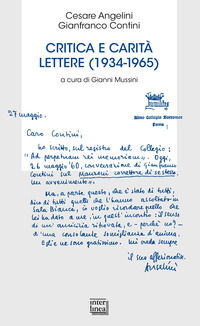 Cesare Angelini
Gianfranco Contini
CRITICA E CARITÀ
LETTERE (1934-1965)
a cura di Gianni Mussini
27 maggio.
humilitas
Almo Collegio Borromeo
Pavia
Caro Contini,
ho scritto, sul registro del Collegio: "
Ad perpetuam rei memoriam. Oggi,
26 maggio '60, conversazione di Gianfranco
Contini sul Manzoni correttore di se stesso.
Un avvenimento".
Ma, a parte questo, che è stato di tutti,
di tutti quelli che l'hanno ascoltato in
Sala Bianca, io voglio ricordare quello che
lei ha dato a me, in quest'incontro: il senso
di una amicizia ritrovata, e - perché no? -
d'una consolante somiglianza d'anima.
E gliene sono gratissimo. Mi creda sempre
il suo
Angelini
inter
linea